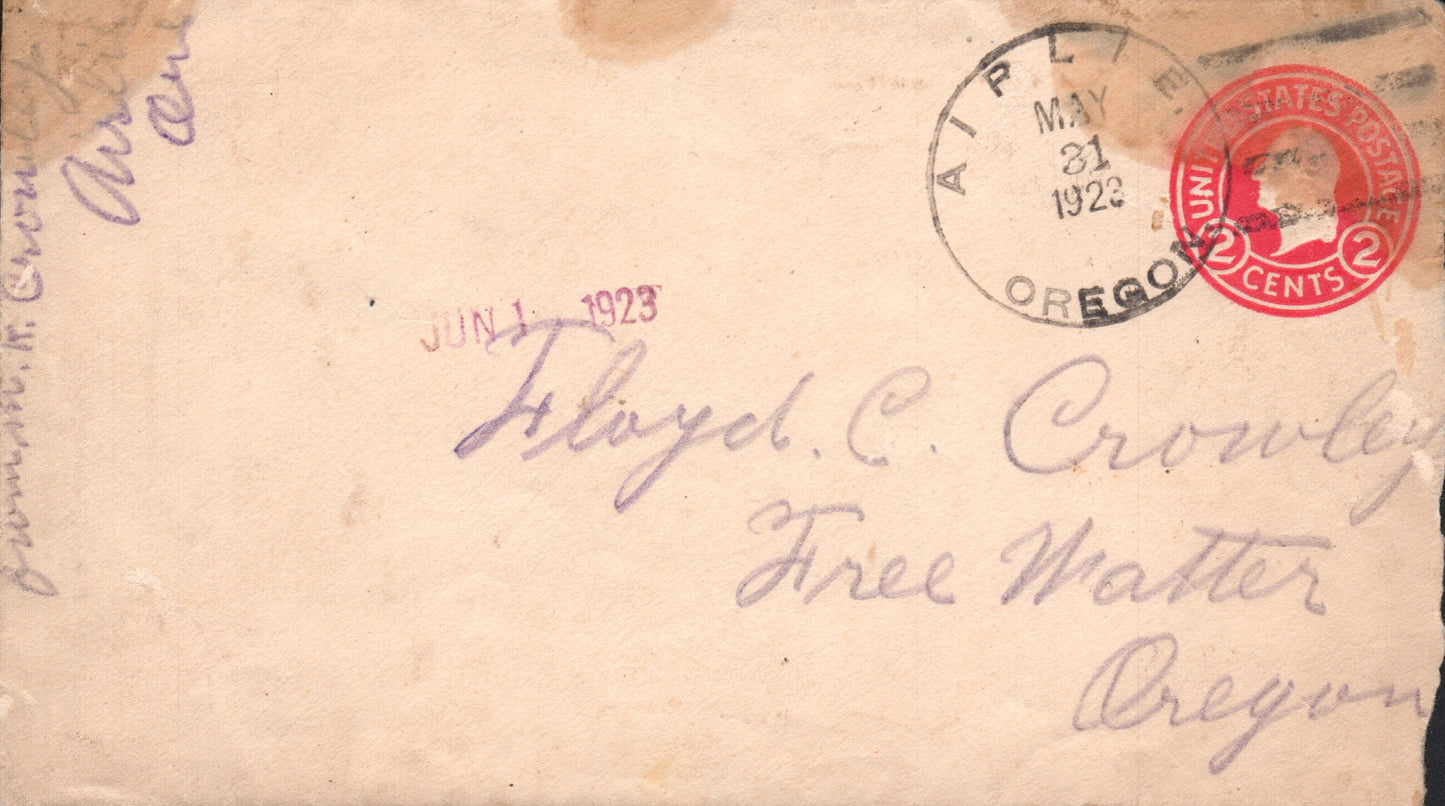 from, M. K. Crowley
Airlie
Ore
AIRLIE.
MAY
31
1923
OREGON.
UNITED STATES POSTAGE
2 CENTS 2
JUN 1 1923
Floyd. C. Crowley
Free Watter
Oregon